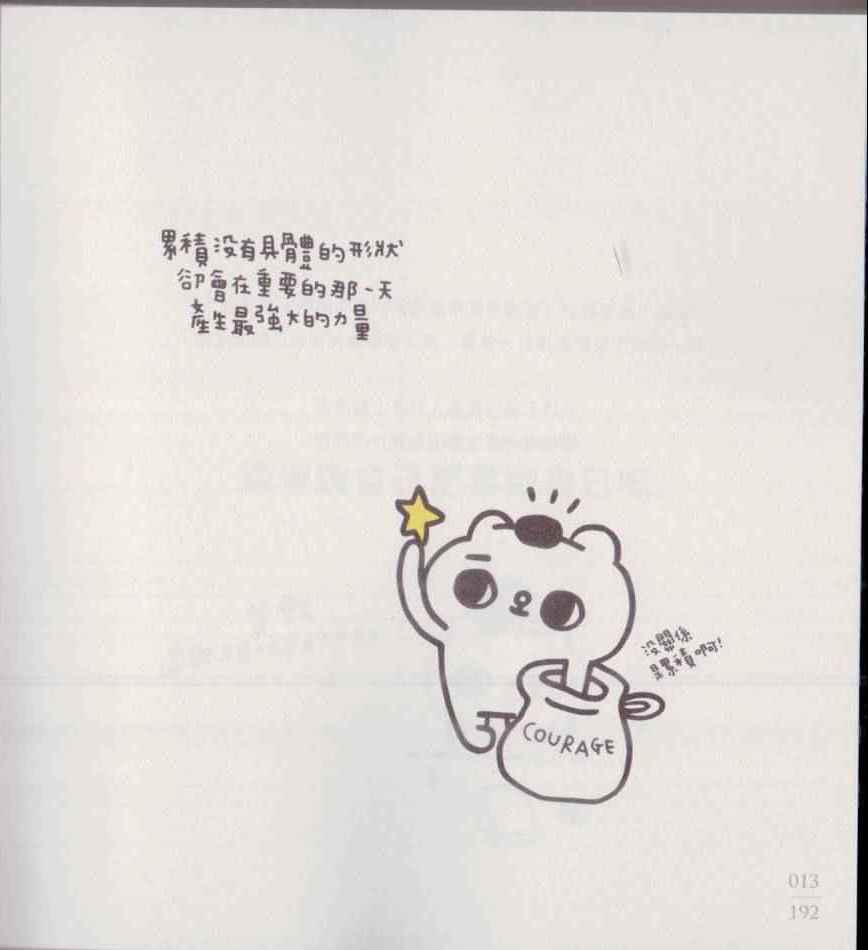 累積沒有具體的形狀
卻會在重要的那一天
產生最強大的力量
沒關係
是累積啊!
COURAGE
013
192